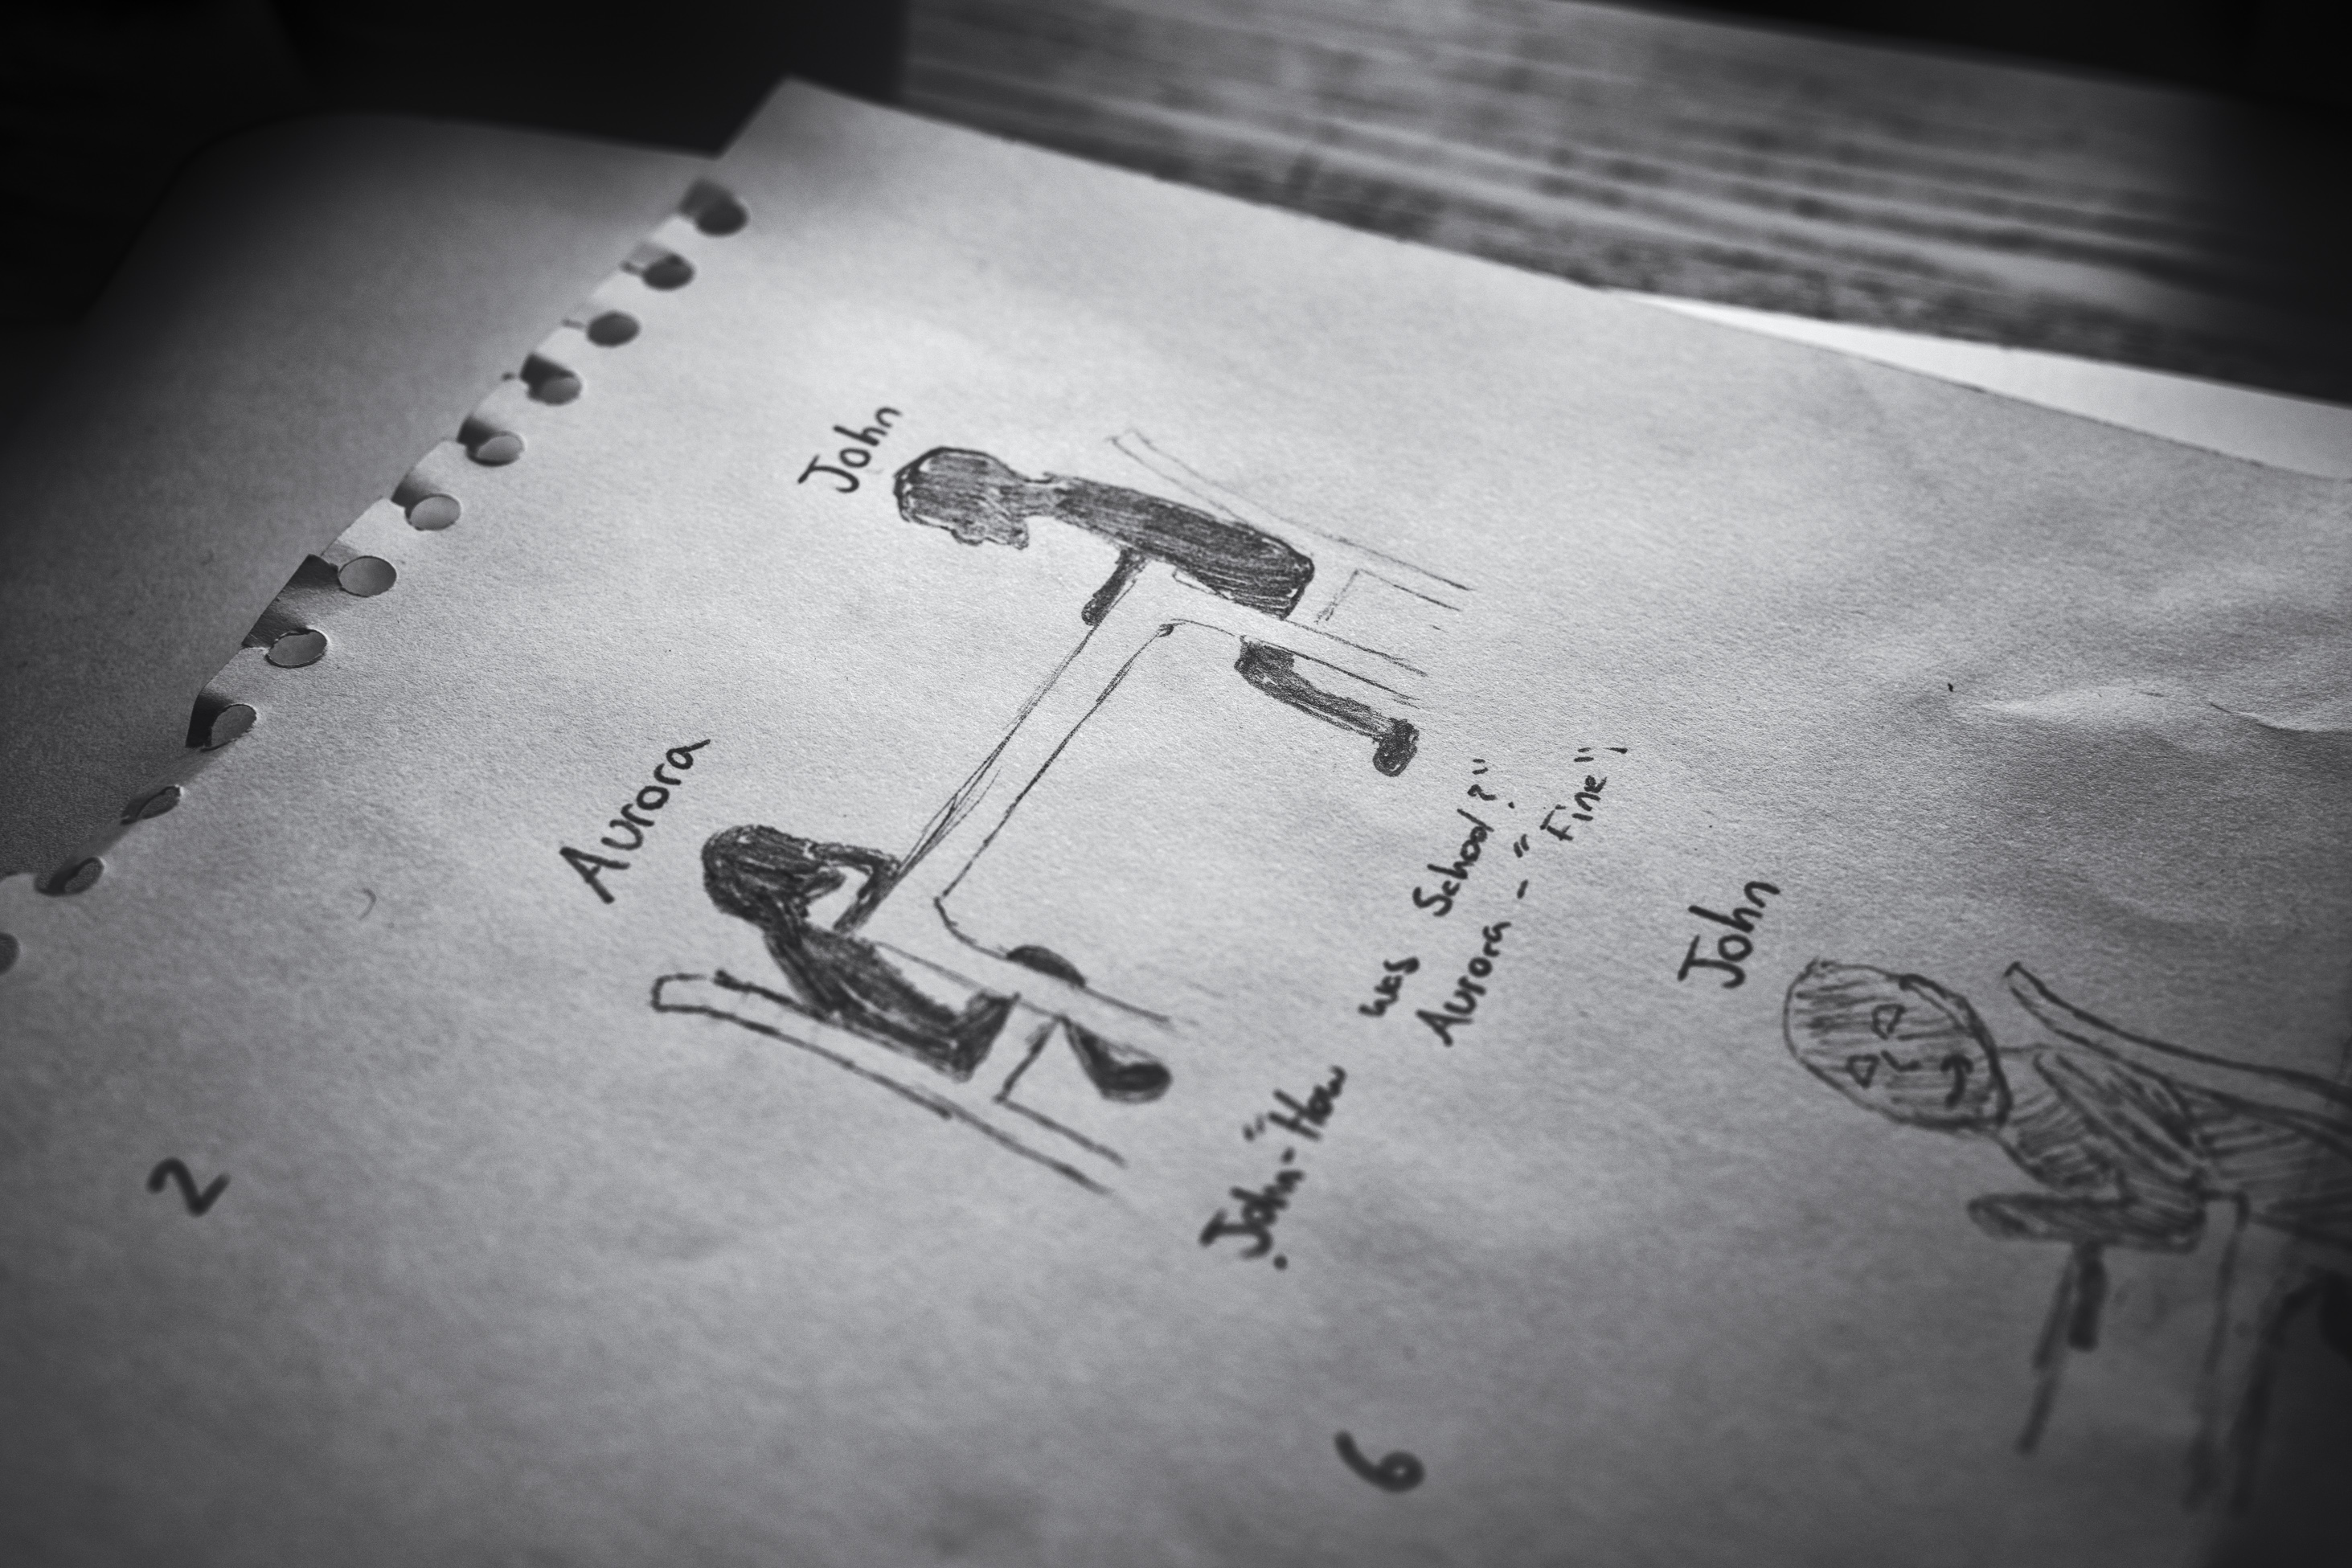 2
Aurora
John
John-"How was School?"
Aurora - "Fine"
6
John